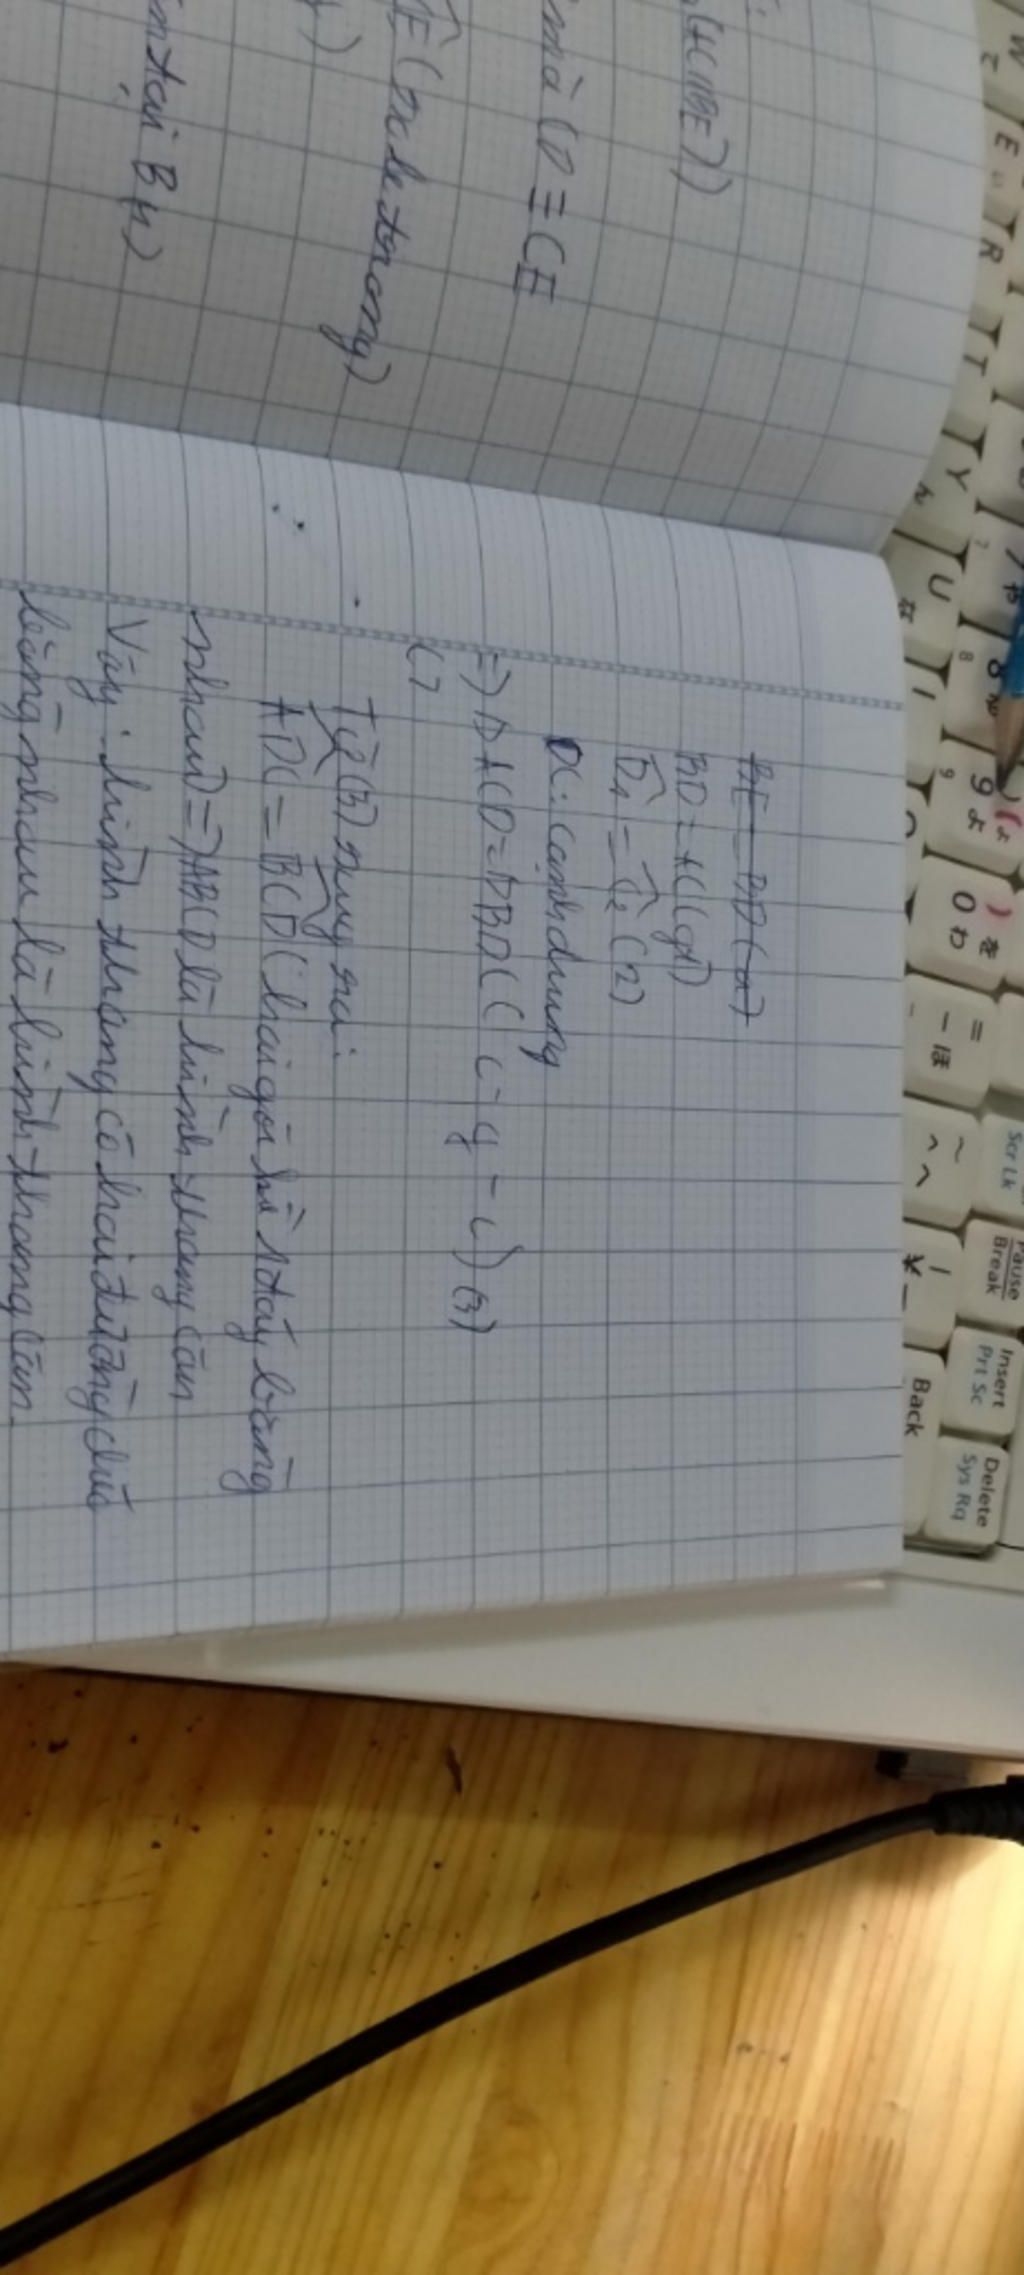 (AC//BE))
mà CD ≡ CE
E (so le trong)
tại B
BE = BD (
BD = AC (gt)
D1 = C1 (2)
DC: cạnh chung
=> Δ ACD = Δ BDC (c - g - c) (3)
c)
Từ (3) suy ra:
ADC = BCD (hai góc kề 1 đáy bằng
nhau) => ABCD là hình thang cân
Vậy: hình thang có hai đường chéo
bằng nhau là hình thang cân.
W
E
R
T
Y
U
I
8
9
0
Scr Lk
Pause
Break
Insert
Prt Sc
Delete
Sys Rq
Back